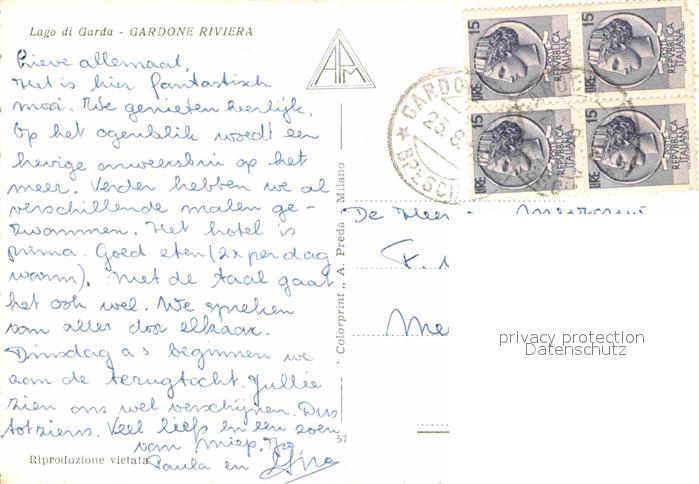 Lago di Garda - GARDONE RIVIERA
Lieve allemaal,
Het is hier fantastisch
mooi. We genieten heerlijk.
Op het ogenblik woedt een
hevige onweersbui op het
meer. Verder hebben we al
verschillende malen ge-
zwommen. Het hotel is
prima. Goed eten (2x per dag
warm). Met de taal gaat
het ook wel. We spreken
van alles door elkaar.
Dinsdag a.s. beginnen we
aan de terugtocht. Jullie
zien ons wel verschijnen. Dus
tot ziens. Veel liefs en een zoen
van Miep,
Paula en
Riproduzione vietata
57
"Colorprint" A. Preda - Milano
APM
GARDO
23.8.
BRESCIA
15
LIRE
REPVBBLICA
ITALIANA
15
LIRE
REPVBBLICA
ITALIANA
15
LIRE
REPVBBLICA
ITALIANA
15
LIRE
REPVBBLICA
ITALIANA
De Heer
F.
Me
privacy protection
Datenschutz